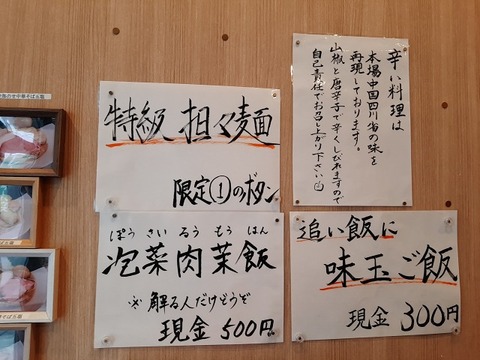 特級 担々麺
限定①のボタン
辛い料理は
本場中国四川省の味を
再現しております。
山椒と唐辛子で辛くしびれますので
自己責任でお召し上がり下さい
ぽうさいろうもうはん
泡菜肉茉飯
※解る人だけどうぞ
現金 500円
追い飯に
味玉ご飯
現金 300円